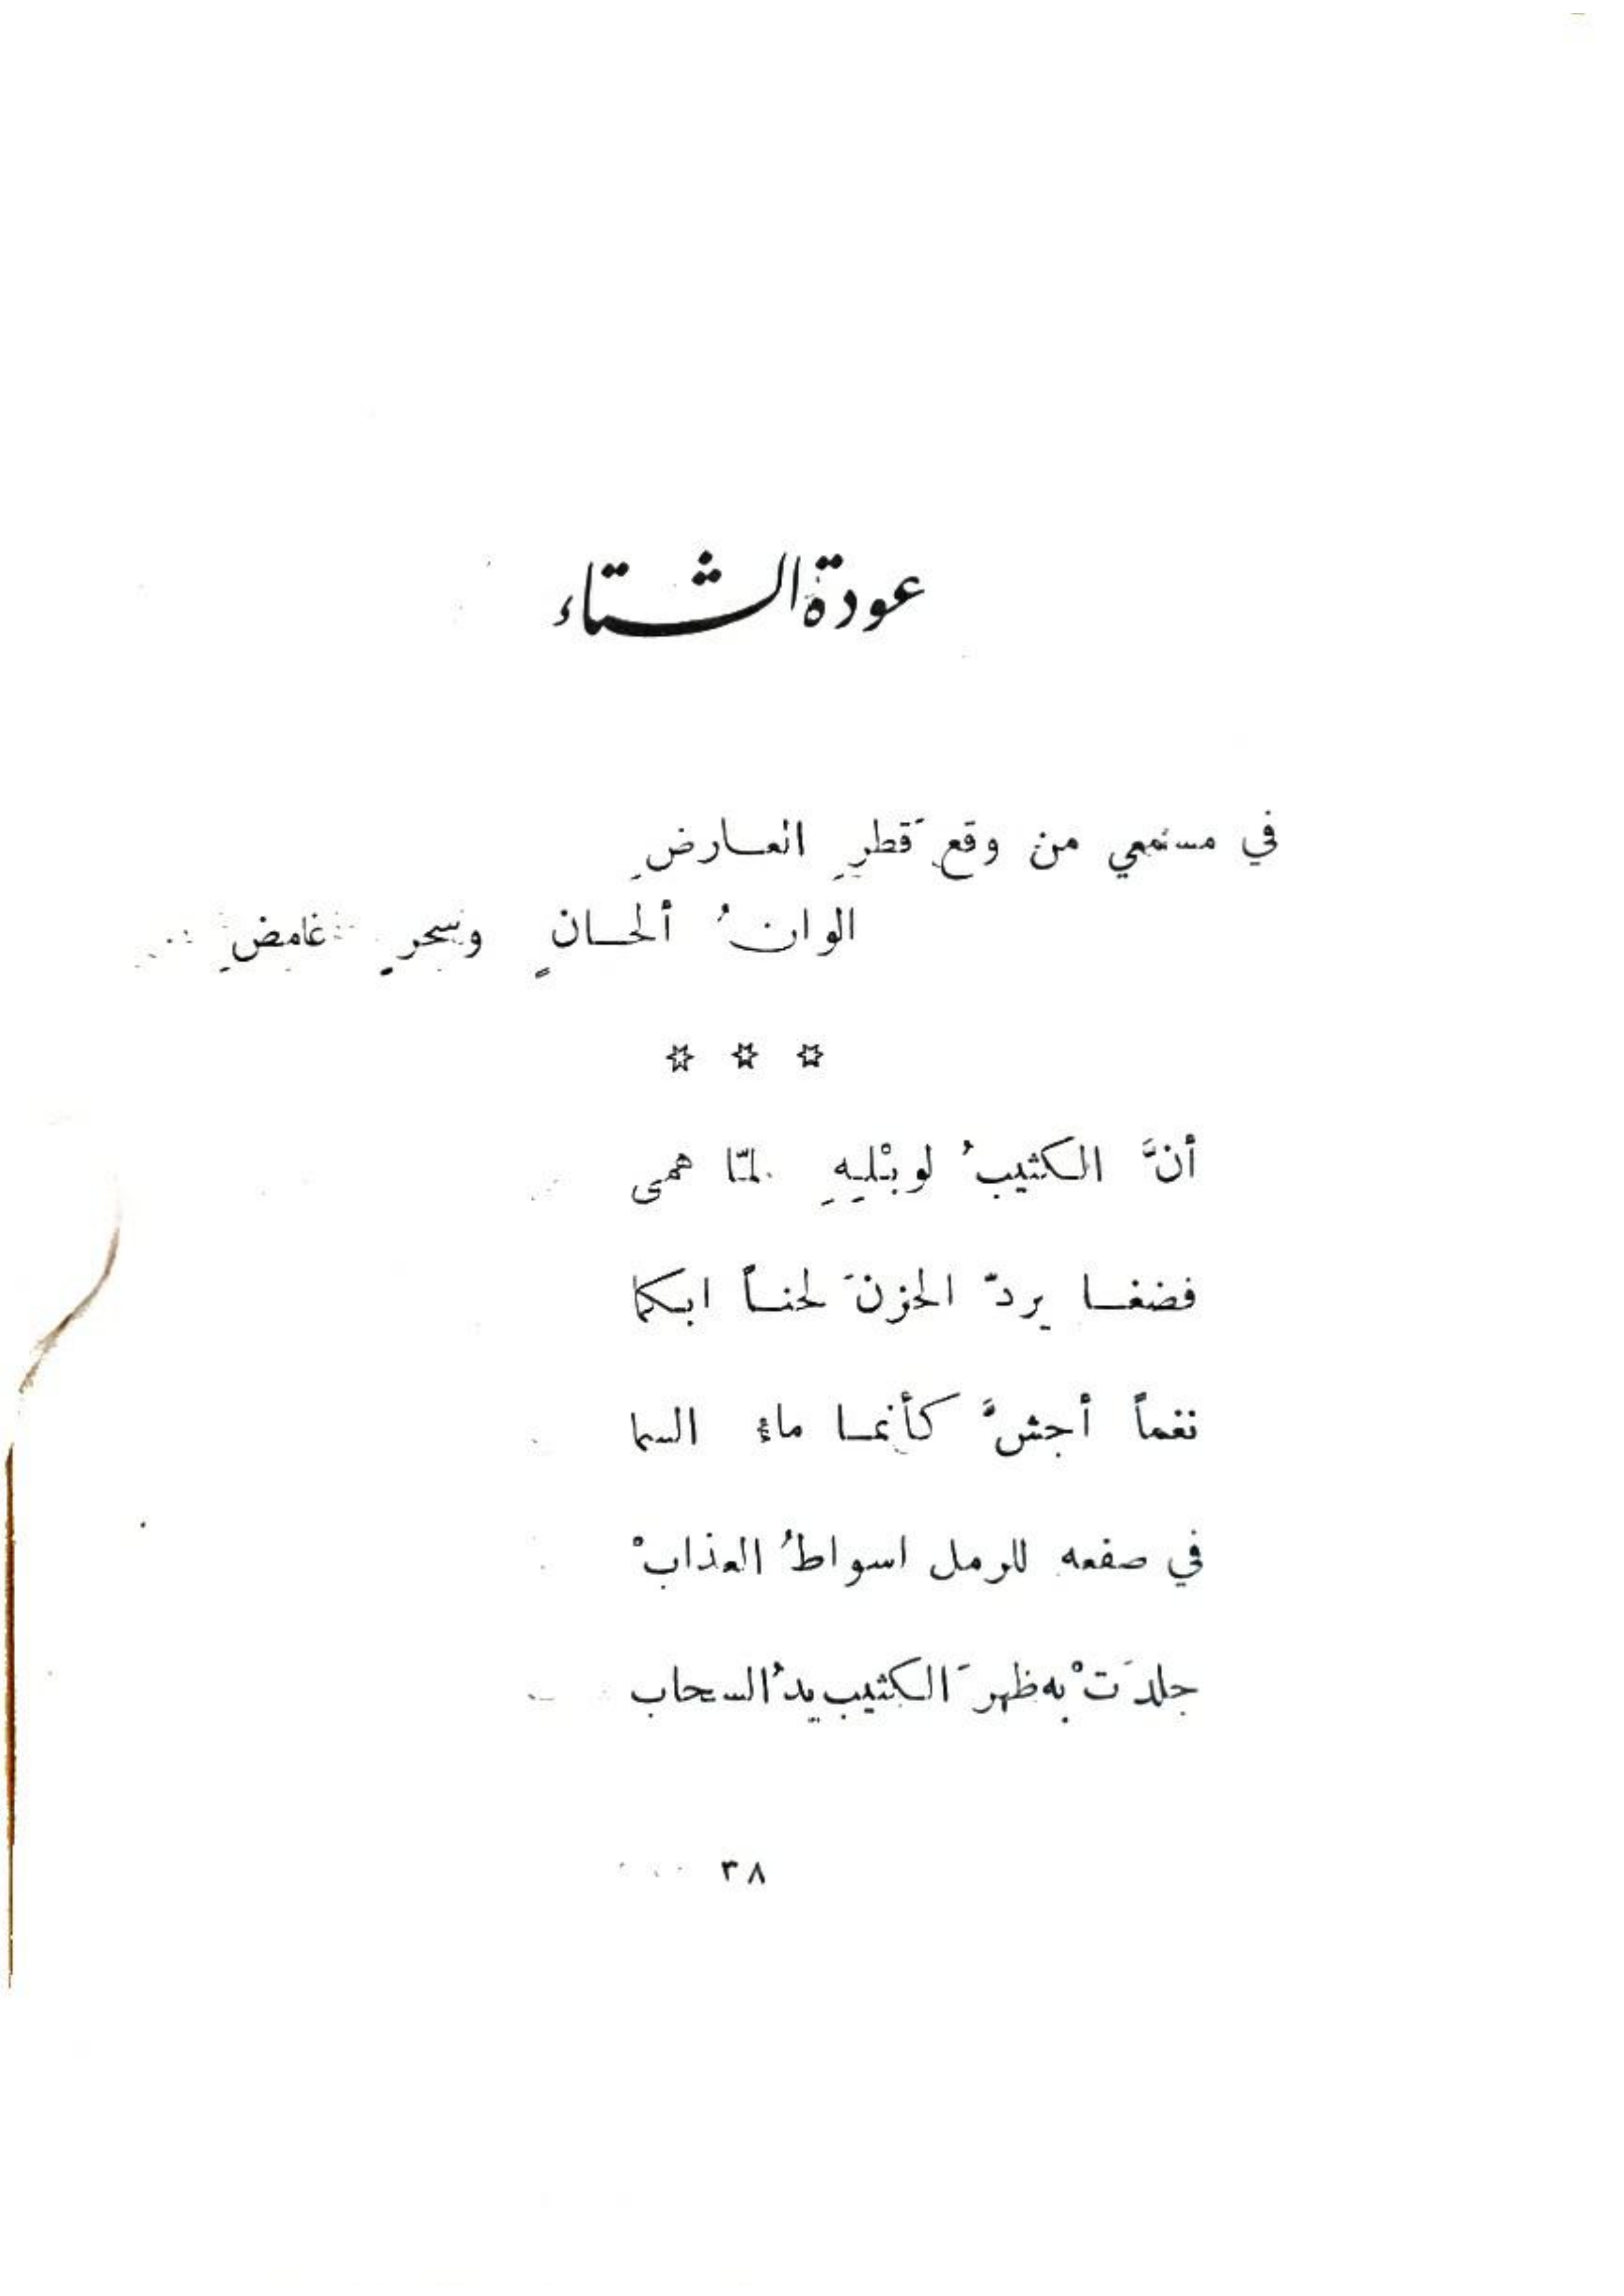 عودة الشتاء
في مستمعي من وقع قَطرِ العـارضِ
الوانُ ألحـانٍ وسحرٍ غامضِ
* * *
أنَّ الكثيبُ لوبْلِهِ لمّا همى
فضغـا يردّ الحزنَ لحنـاً ابـكما
نغماً أجشَّ كأنمـا ماءُ السما
في صفعه للرمل اسواطُ العذابْ
جلدَتْ به ظهرَ الكثيب يدُ السحاب
٣٨